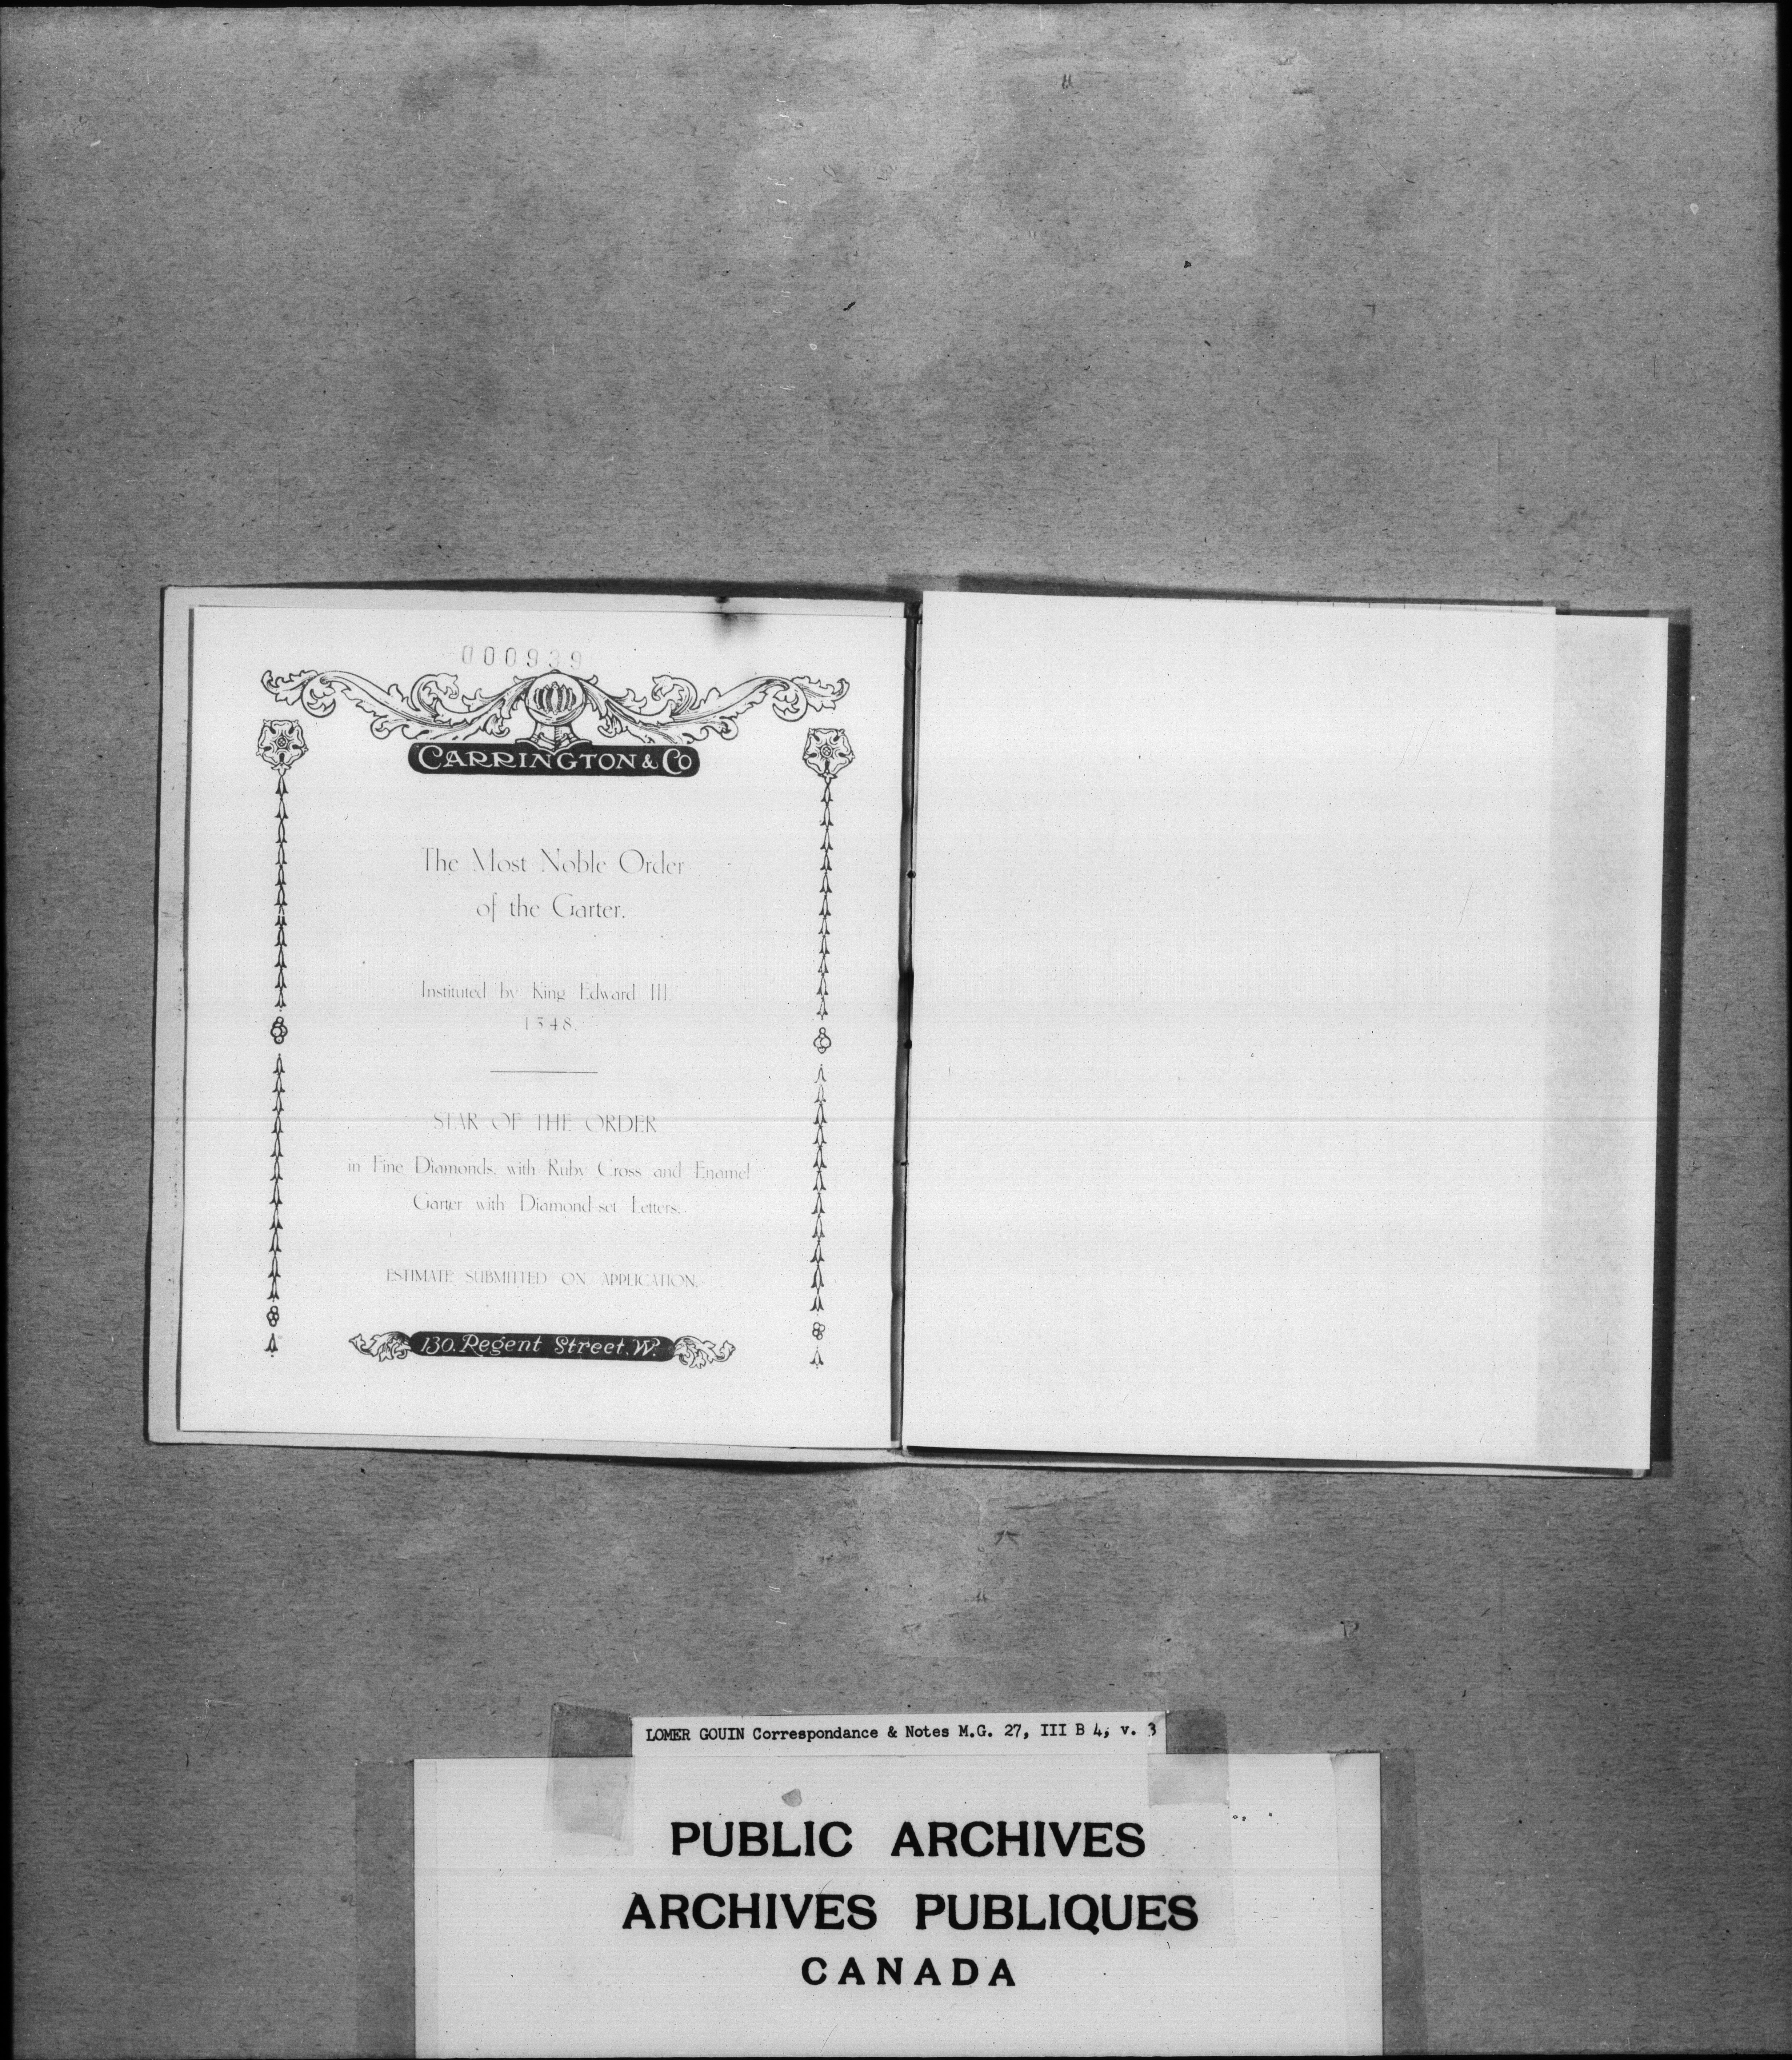 000939
CARRINGTON & CO
The Most Noble Order
of the Garter.
Instituted by King Edward III.
1348.
STAR OF THE ORDER
in Fine Diamonds, with Ruby Cross and Enamel
Garter with Diamond-set Letters.
ESTIMATE SUBMITTED ON APPLICATION.
130. Regent Street. W.
LOMER GOUIN Correspondance & Notes M.G. 27, III B 4, v. 3
PUBLIC ARCHIVES
ARCHIVES PUBLIQUES
CANADA